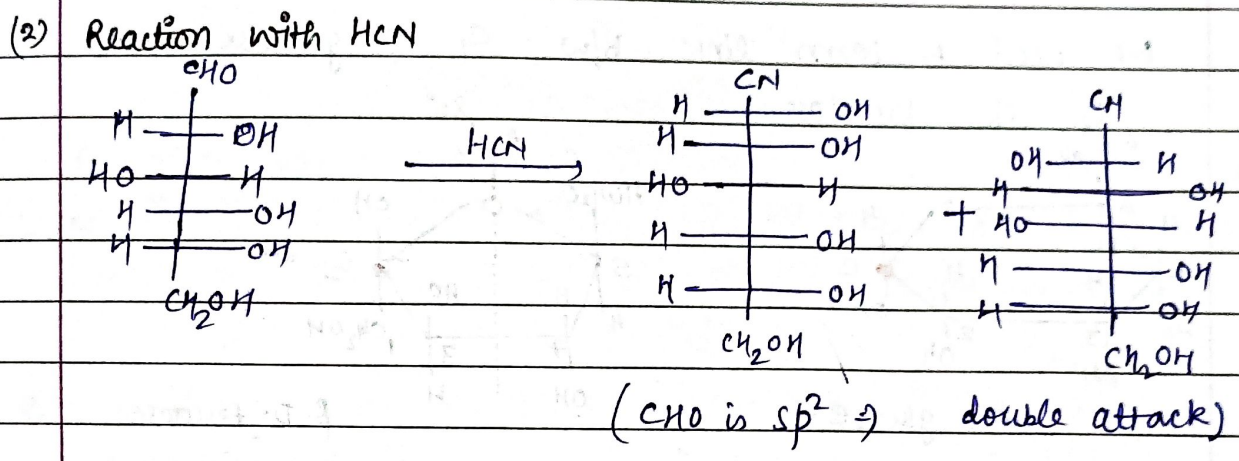 (2) Reaction with HCN
CHO
H OH
HO H
H OH
H OH
CH2OH
HCN
CN
H OH
H OH
HO H
H OH
H OH
CH2OH
+
CH
OH H
H OH
HO H
H OH
H OH
CH2OH
(CHO is sp² ⇒ double attack)